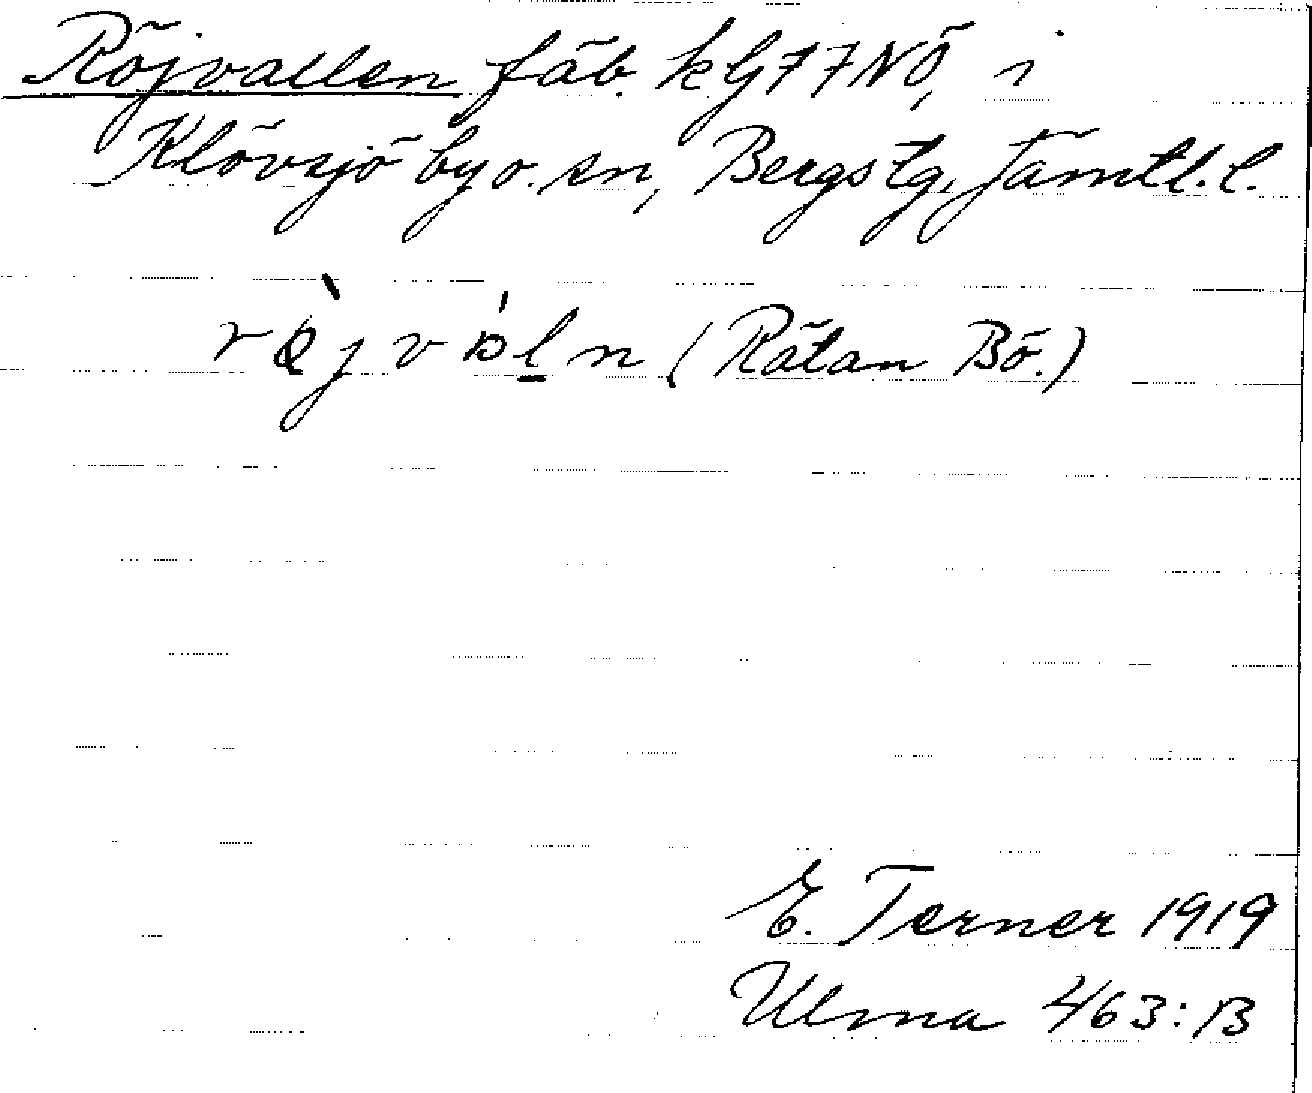 Röjvallen fäb. kG77NÖ, i
Klövsjö by o. sn, Bergs tg, Jämtl. l.
(Rätan Bö.)
E. Terner 1919
Ulma 463:B